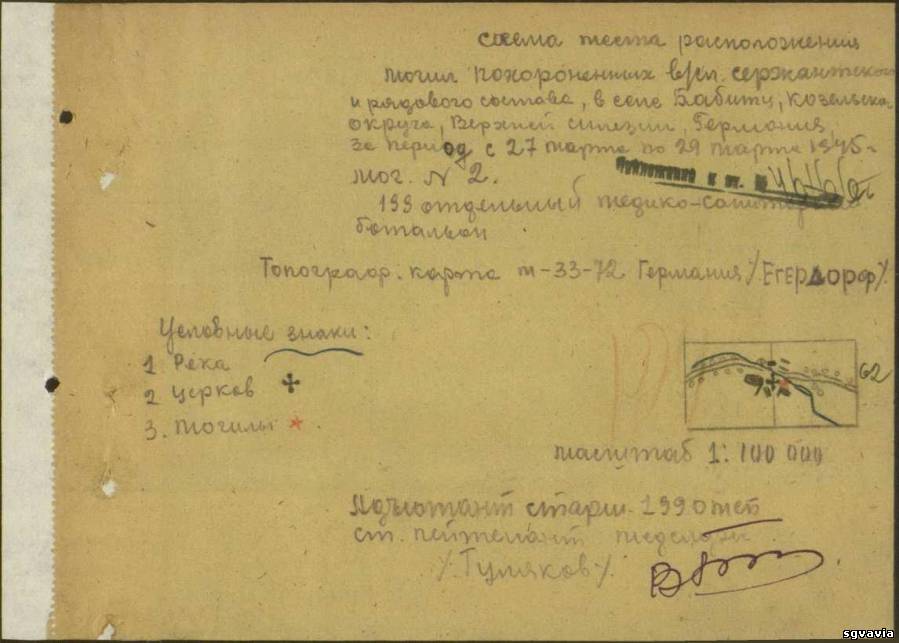 схема места расположения
могил похороненных в/сл. сержантского
и рядового состава, в селе Бабитц, Козельска
округа, Верхней Силезии, Германия,
за период с 27 марта по 29 марта 1945 г
мог. N 2.
Приложение к вх. №
199 отдельный медико-санитарный
батальон
Топограф. карта м-33-72 Германия /Егердорф/.
Условные знаки:
1 Река
2 Церков
3. Могилы
62
масштаб 1:100 000
Адъютант старш. 199 омсб
ст. лейтенант медслужбы
/.Гумяков/.
sgvavia